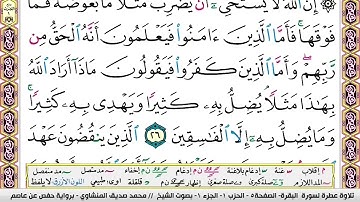 إِنَّ اللَّهَ لَا يَسْتَحْيِي أَن يَضْرِبَ مَثَلًا مَّا بَعُوضَةً فَمَا
فَوْقَهَا فَأَمَّا الَّذِينَ ءَامَنُوا فَيَعْلَمُونَ أَنَّهُ الْحَقُّ مِن
رَّبِّهِمْ وَأَمَّا الَّذِينَ كَفَرُوا فَيَقُولُونَ مَاذَا أَرَادَ اللَّهُ
بِهَٰذَا مَثَلًا يُضِلُّ بِهِ كَثِيرًا وَيَهْدِي بِهِ كَثِيرًا
وَمَا يُضِلُّ بِهِ إِلَّا الْفَاسِقِينَ ٢٦ الَّذِينَ يَنقُضُونَ عَهْدَ
تلاوة عطرة لسورة البقرة - الصفحة ٥ - الحزب ١ - الجزء ١ - بصوت الشيخ // محمد صديق المنشاوي - برواية حفص عن عاصم